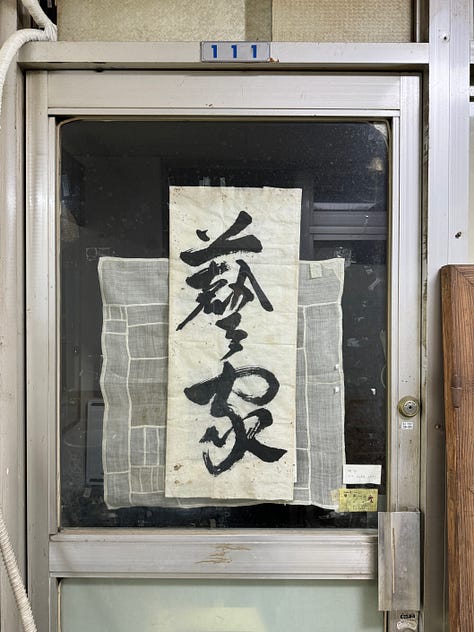 111
藝家